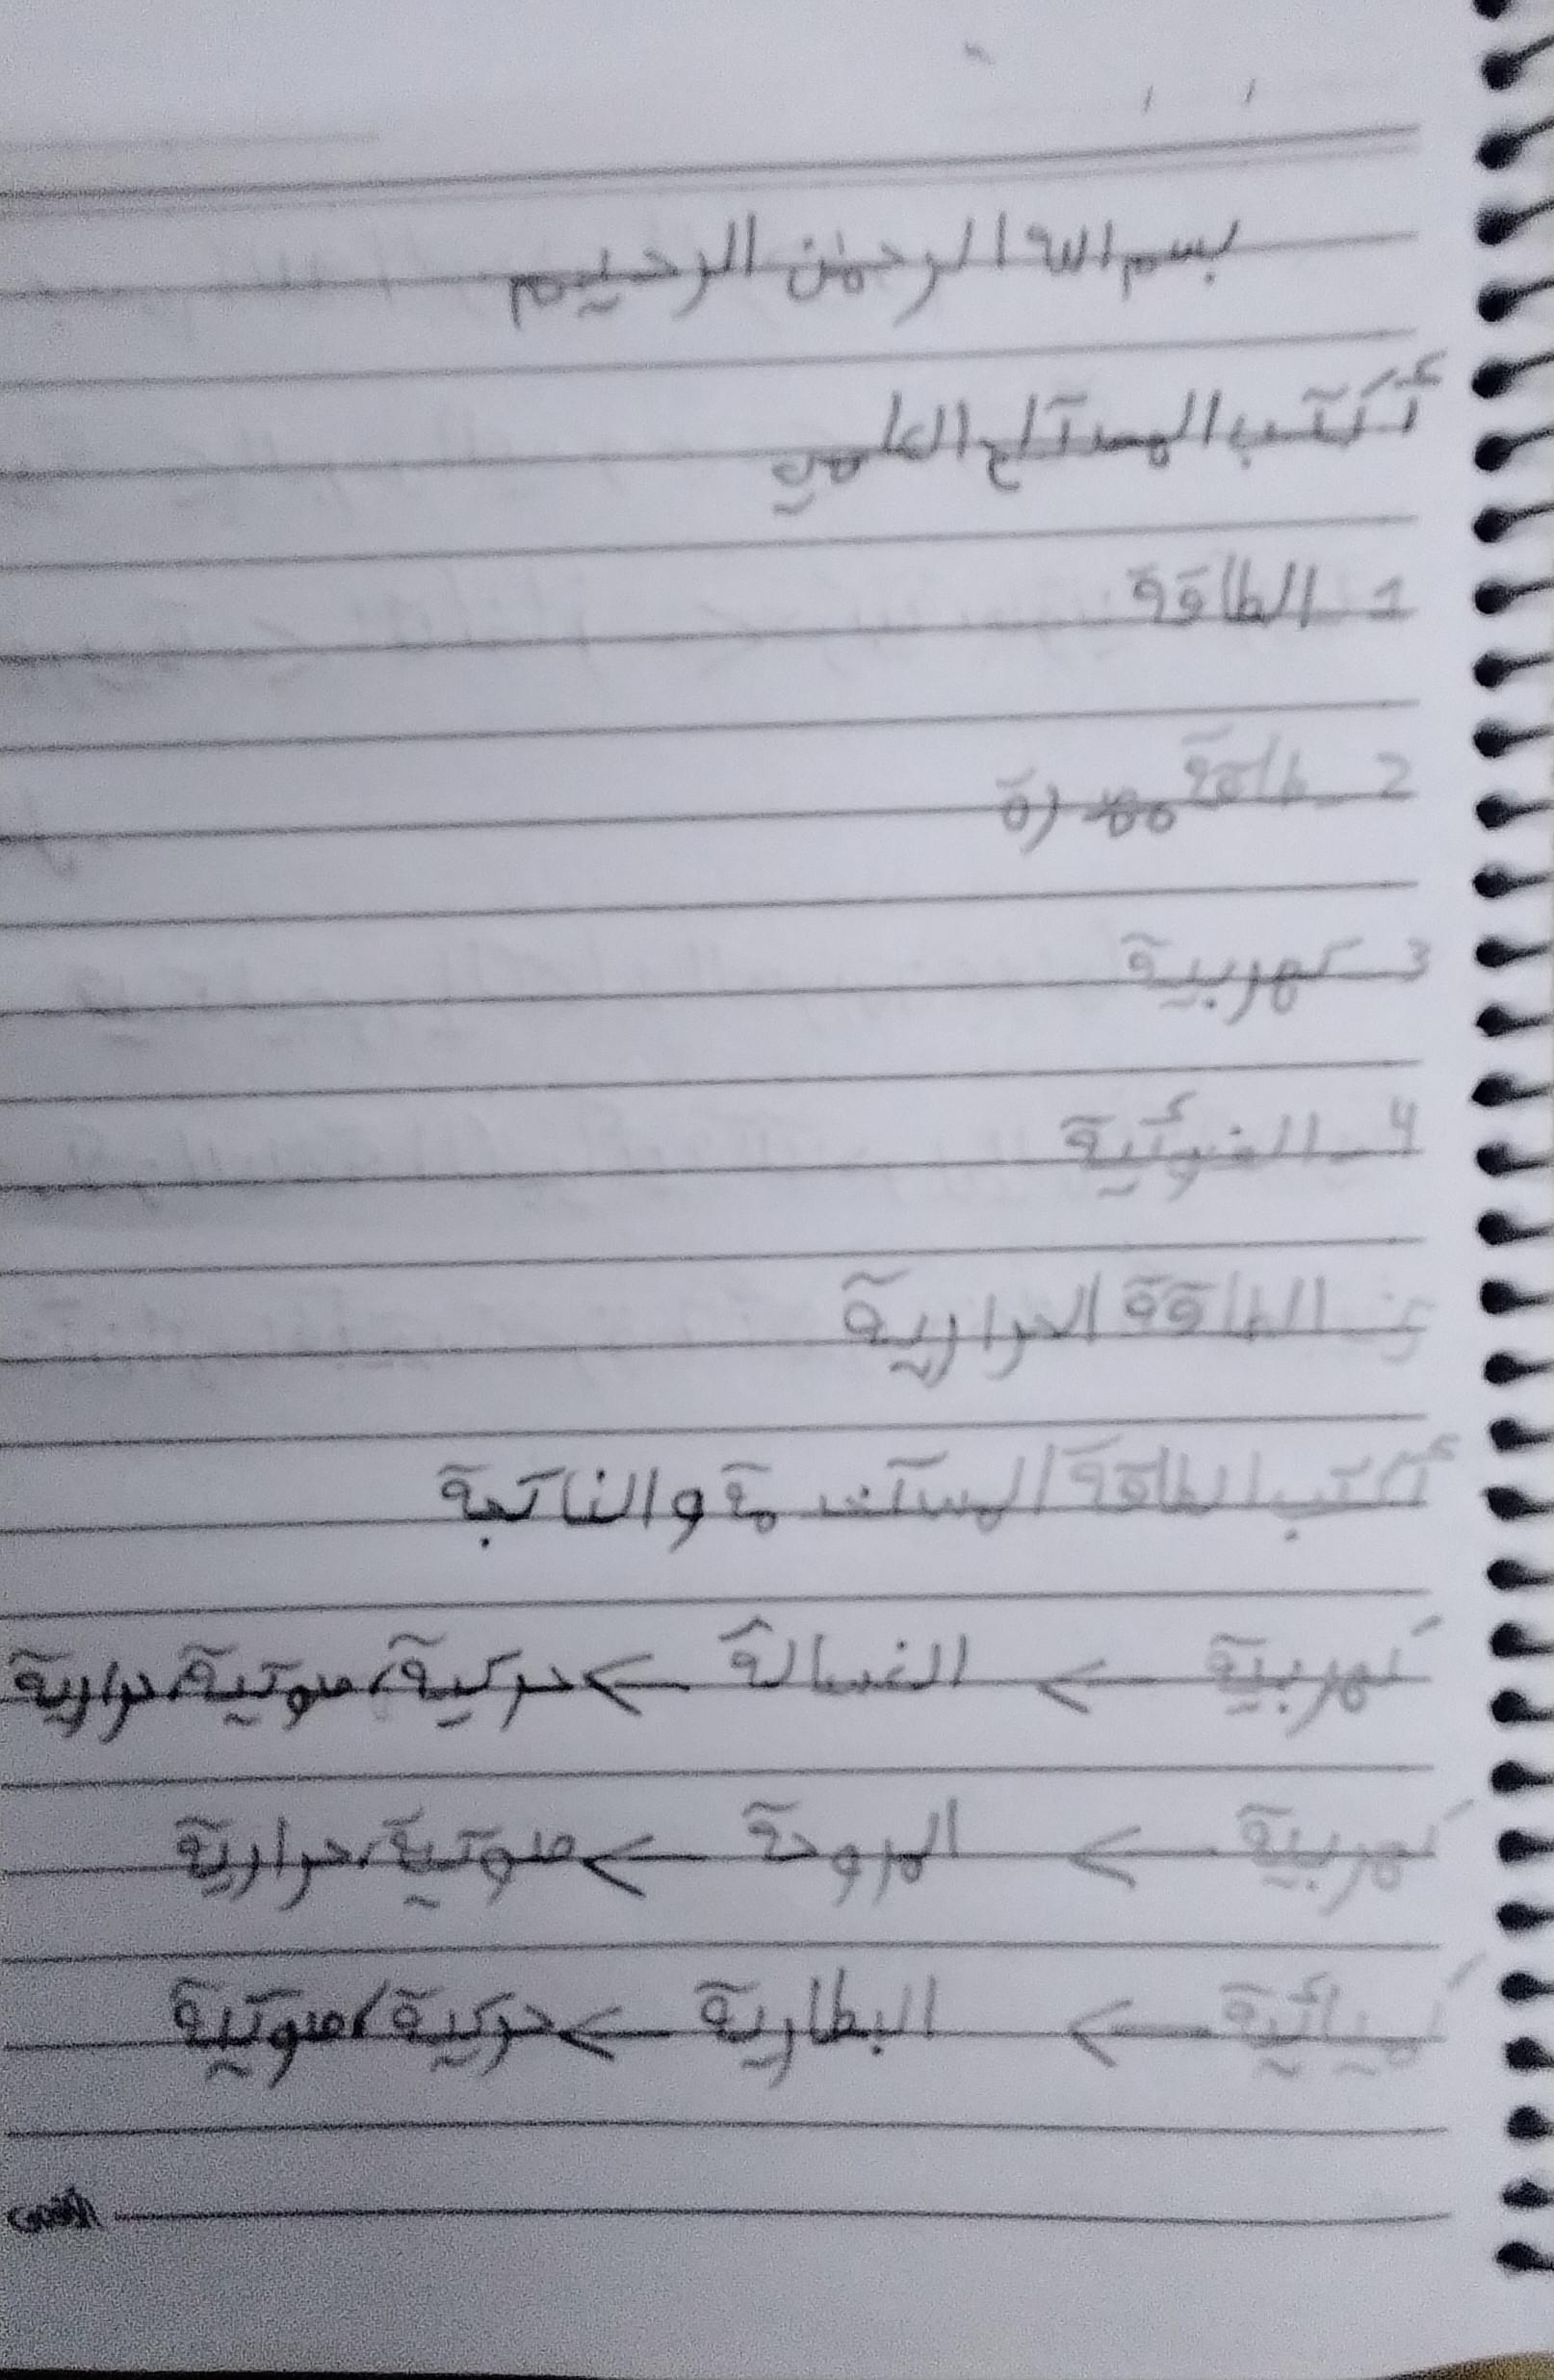 بسم الله الرحمن الرحيم
أكتب المصتلح العلمي
1 الطاقة
2 - طاقة
3 كهربية
4 - الضوئية
5 - الطاقة الحرارية
أكتب الطاقة المستخدمة والناتجة
كهربية ← الغسالة ← حركية، صوتية، حرارية
كهربية ← المروحة ← صوتية، حرارية
كميائية ← البطارية ← حركية، صوتية